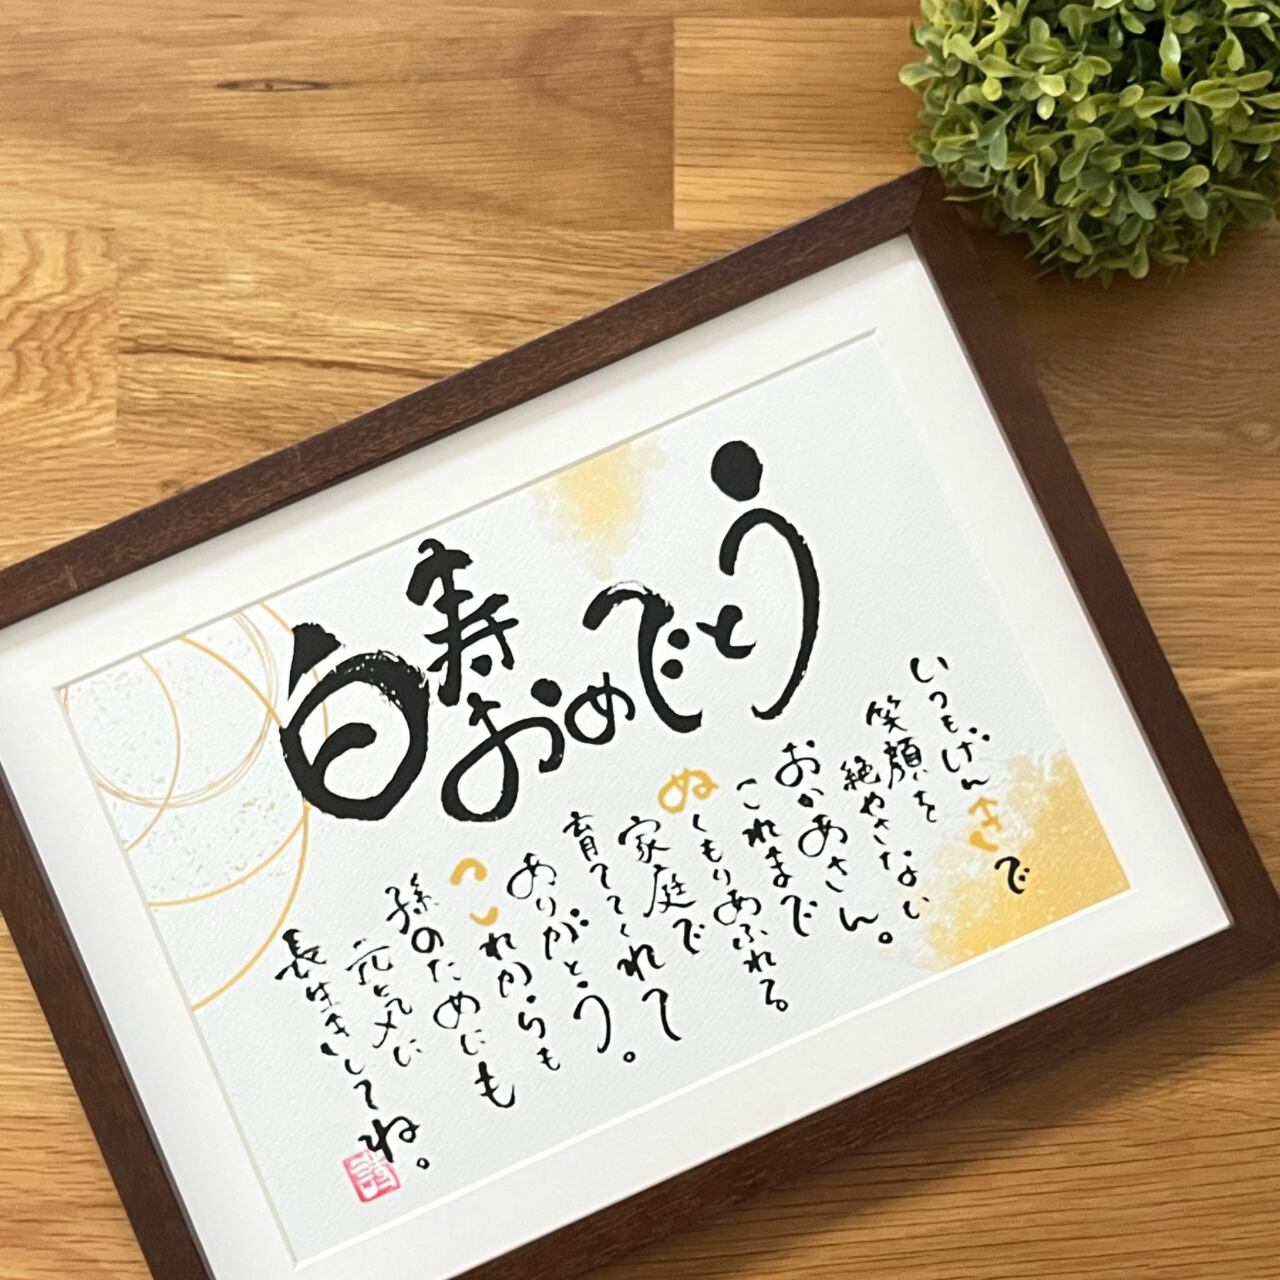 白寿おめでとう
いつもげんきで
笑顔を
絶やさない
おかあさん。
これまで
ぬくもりあふれる
家庭で
育ててくれて
ありがとう。
これからも
孫のためにも
元気に
長生きしてね。